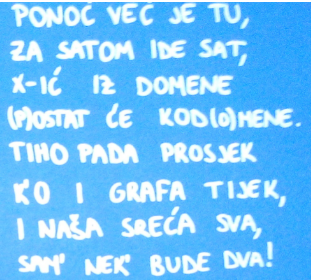 PONOĆ VEĆ JE TU,
ZA SATOM IDE SAT,
X-IĆ IZ DOMENE
(P)OSTAT ĆE KOD(O)MENE.
TIHO PADA PROSJEK
K'O I GRAFA TIJEK,
I NAŠA SREĆA SVA,
SAM' NEK' BUDE DVA!